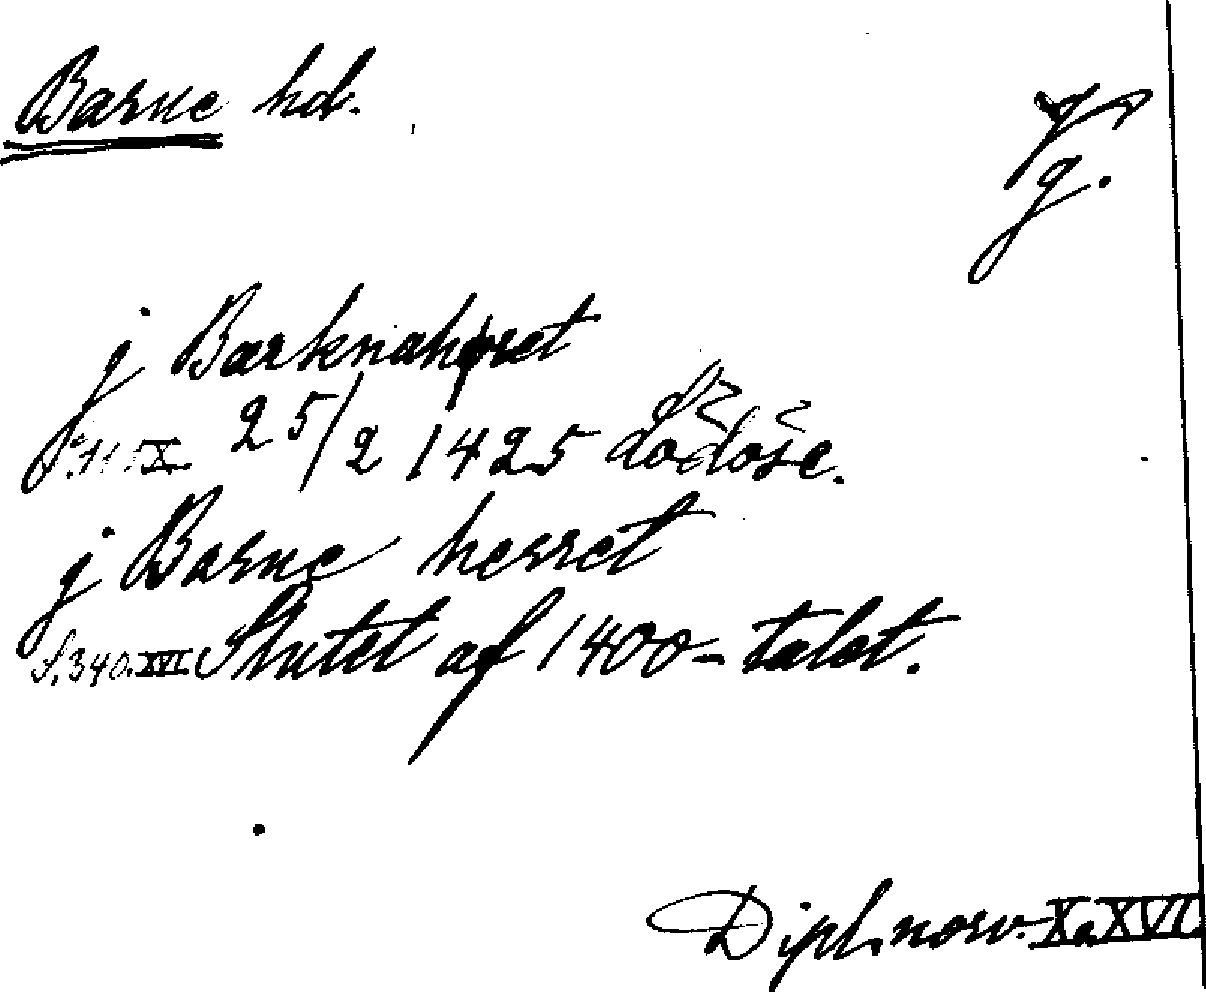 Barne hd.
Vg.
j Barknahæret
25/2 1425 Lödöse.
j Barne herret
S. 340. XVI. Slutet af 1400-talet.
Dipl. norv. X o XVI